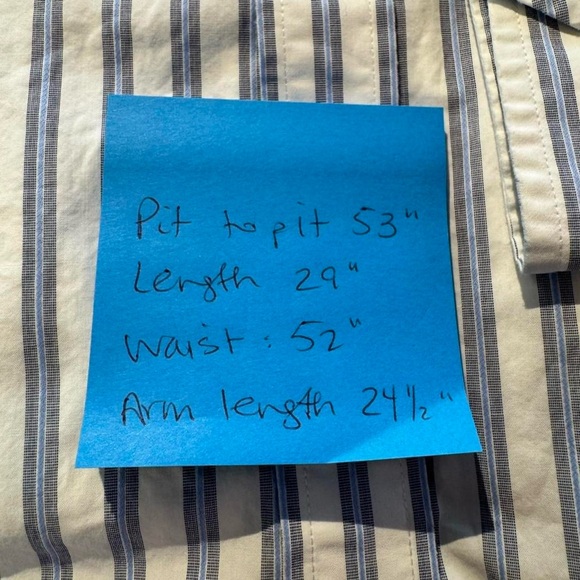 Pit to pit 53"
Length 29"
Waist: 52"
Arm length 24 1/2"